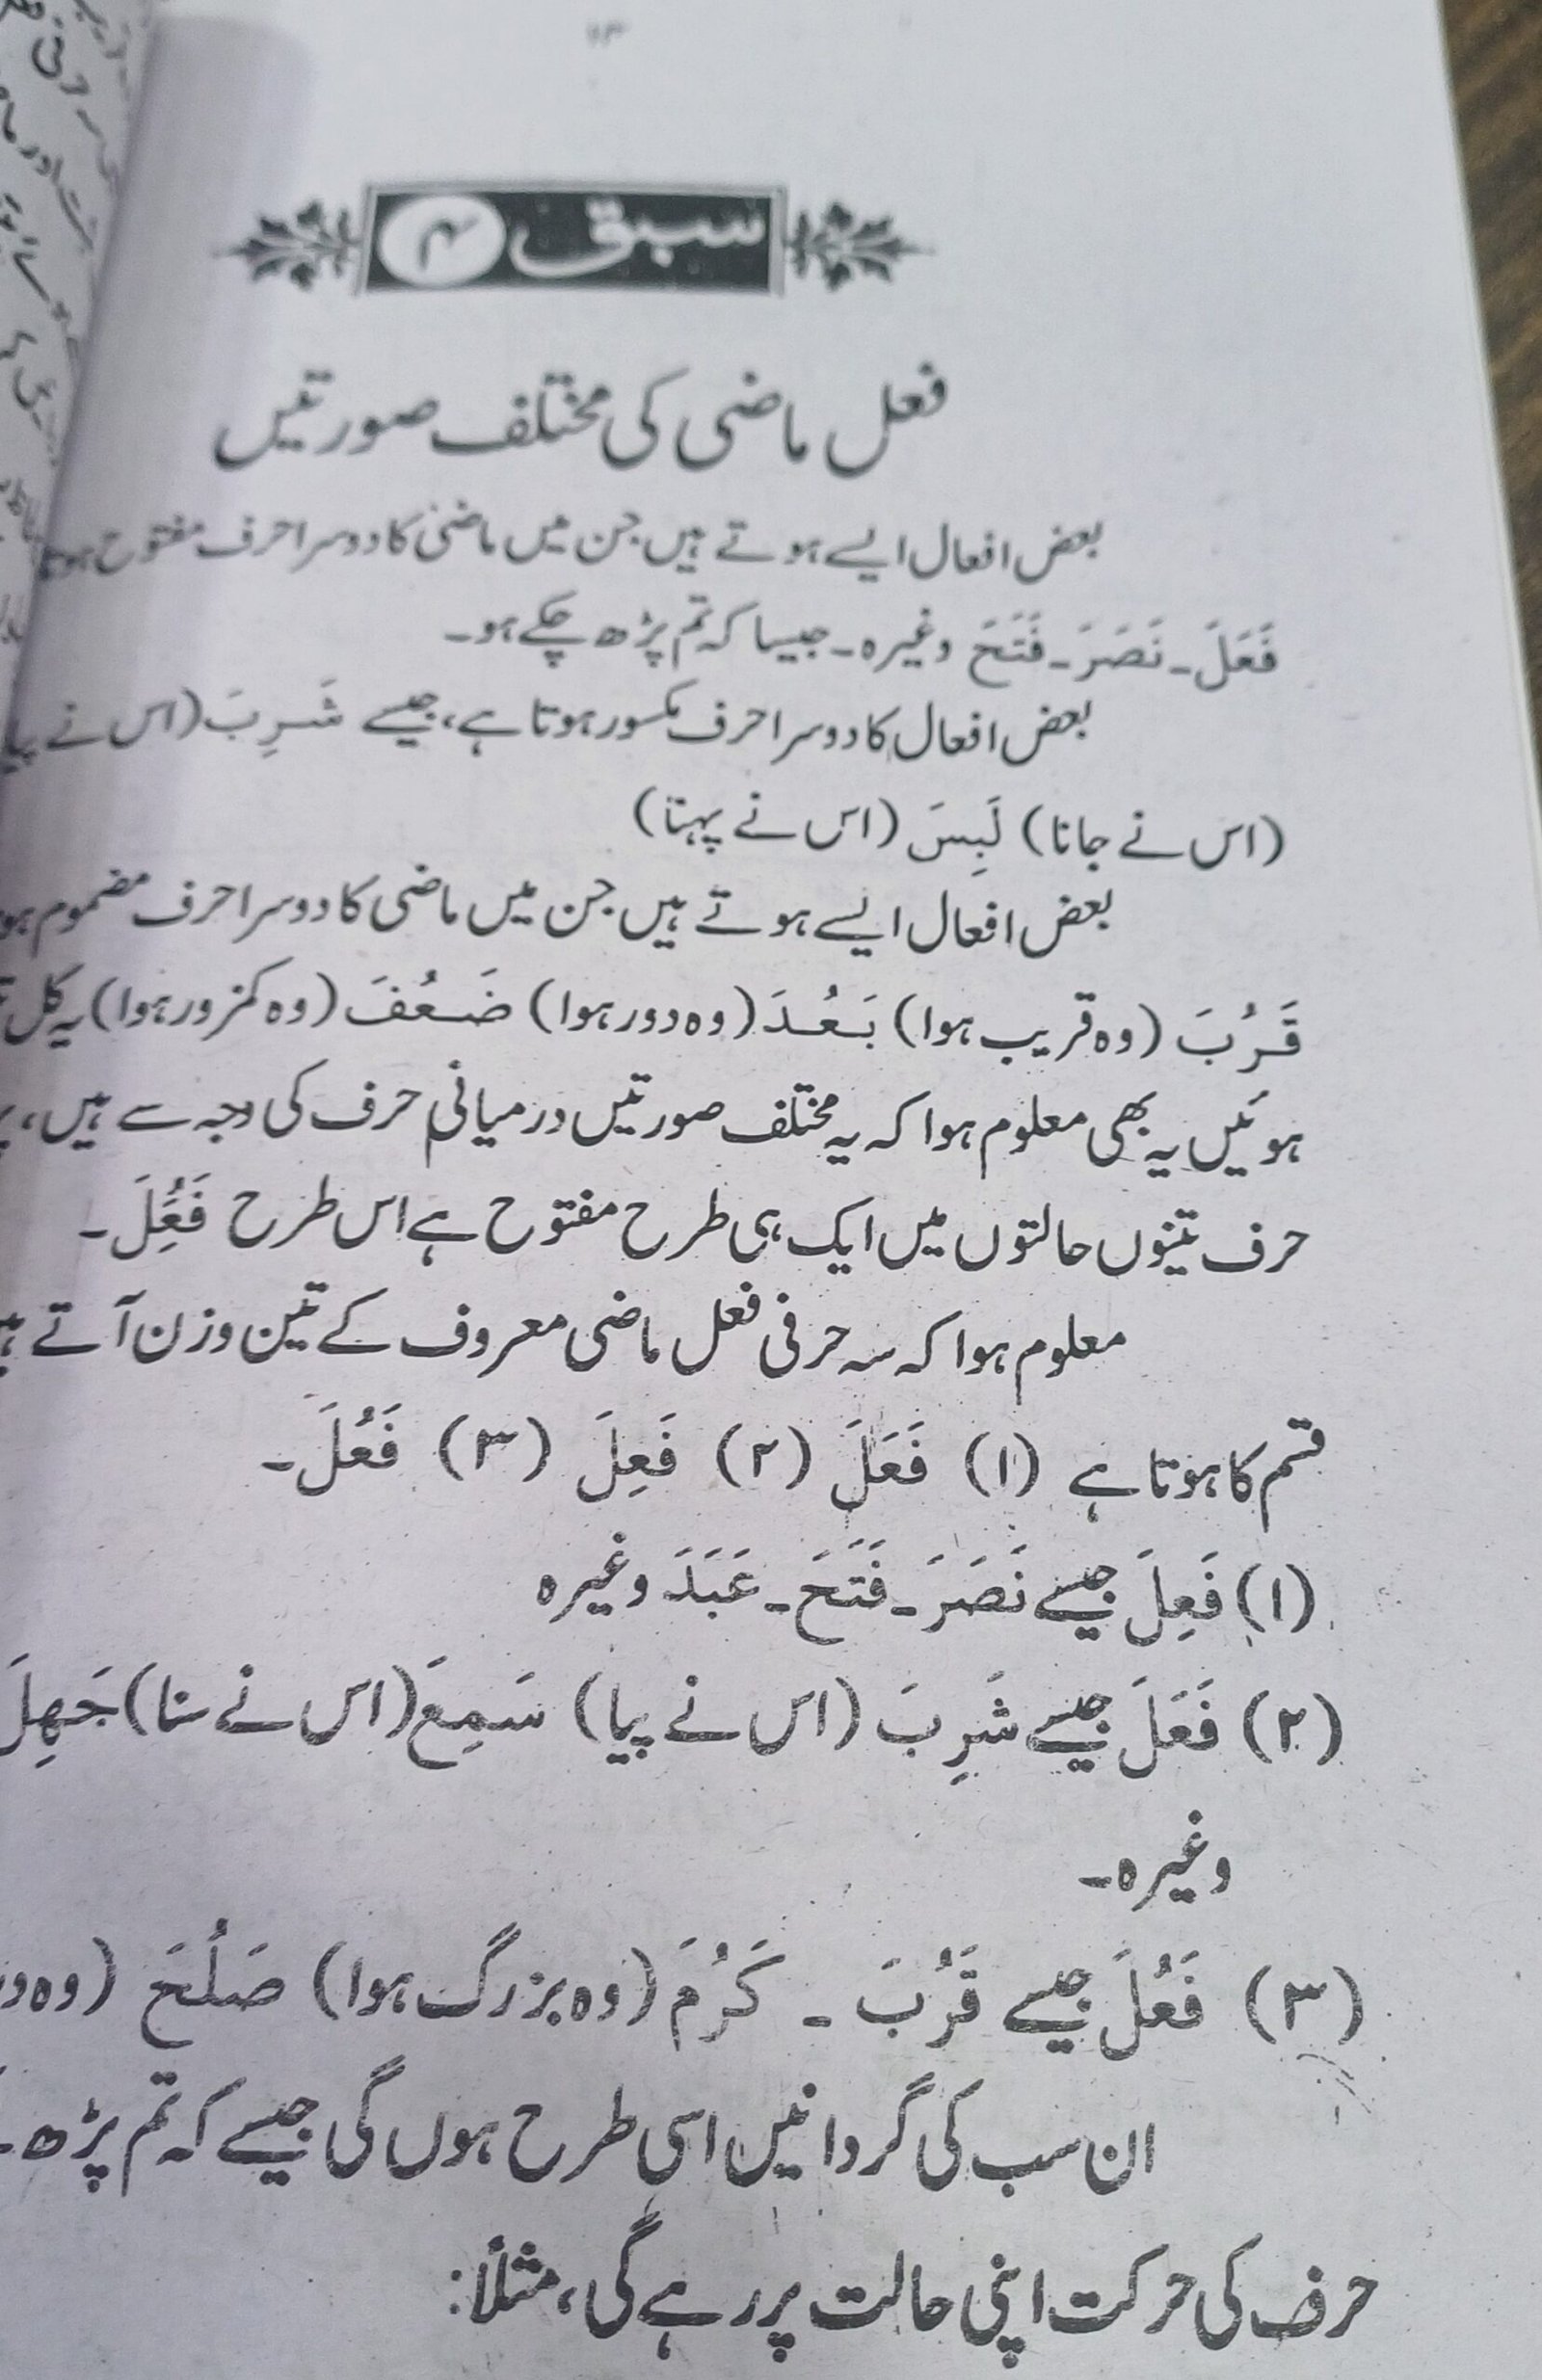 ۱۳
سبق ۴
فعل ماضی کی مختلف صورتیں
بعض افعال ایسے ہوتے ہیں جن میں ماضی کا دوسرا حرف مفتوح
فَعَلَ۔ نَصَرَ۔ فَتَحَ وغیرہ۔ جیسا کہ تم پڑھ چکے ہو۔
بعض افعال کا دوسرا حرف مکسور ہوتا ہے، جیسے شَرِبَ (اس نے
(اس نے جانا) لَبِسَ (اس نے پہنا)
بعض افعال ایسے ہوتے ہیں جن میں ماضی کا دوسرا حرف مضموم
قَرُبَ (وہ قریب ہوا) بَعُدَ (وہ دور ہوا) ضَعُفَ (وہ کمزور ہوا) یہ کل
ہوئیں یہ بھی معلوم ہوا کہ یہ مختلف صورتیں درمیانی حرف کی وجہ سے ہیں،
حرف تینوں حالتوں میں ایک ہی طرح مفتوح ہے اس طرح فَعَُِلَ۔
معلوم ہوا کہ سہ حرفی فعل ماضی معروف کے تین وزن آتے
قسم کا ہوتا ہے (۱) فَعَلَ (۲) فَعِلَ (۳) فَعُلَ۔
(۱) فَعِلَ جیسے نَصَرَ۔ فَتَحَ۔ عَبَدَ وغیرہ
(۲) فَعَلَ جیسے شَرِبَ (اس نے پیا) سَمِعَ (اس نے سنا) جَهِلَ
وغیرہ۔
(۳) فَعُلَ جیسے قَرُبَ ۔ کَرُمَ (وہ بزرگ ہوا) صَلُحَ (وہ
ان سب کی گردانیں اسی طرح ہوں گی جیسے کہ تم پڑھ
حرف کی حرکت اپنی حالت پر رہے گی، مثلاً: